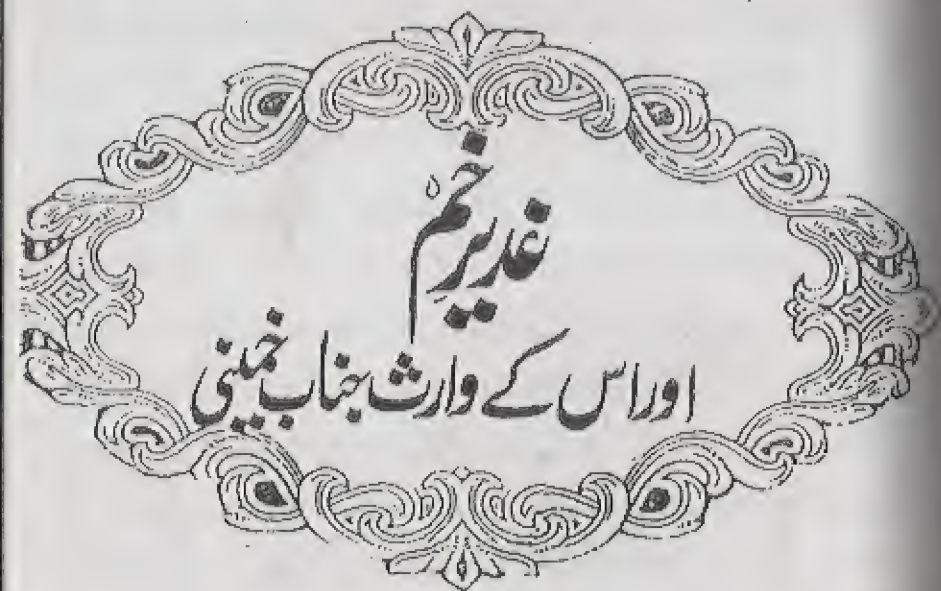 غدیرِ خم
اور اس کے وارث جناب خمینی